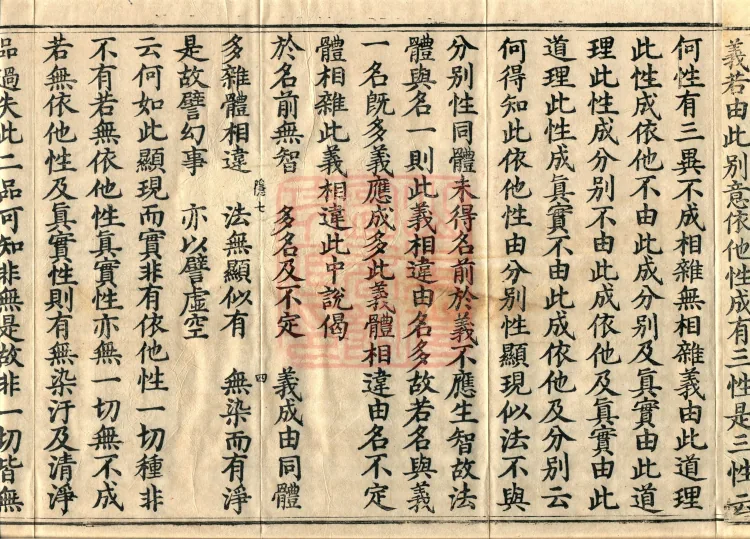 義若由此別意依他性成有三性是三性云
何性有三異不成相雜無相雜義由此道理
此性成依他不由此成分別及眞實由此道
理此性成分別不由此成依他及眞實由此
道理此性成眞實不由此成依他及分別云
何得知此依他性由分別性顯現似法不與
分別性同體未得名前於義不應生智故法
體與名一則此義相違由名多故若名與義
一名旣多義應成多此義體相違由名不定
體相雜此義相違此中說偈
於名前無智　多名及不定　義成由同體
多雜體相違　法無顯似有　無染而有淨
陰七　四
是故譬幻事　亦以譬虛空
云何如此顯現而實非有依他性一切種非
不有若無依他性眞實性亦無一切無不成
若無依他性及眞實性則有無染汙及清淨
品過失此二品可知非無是故非一切皆無